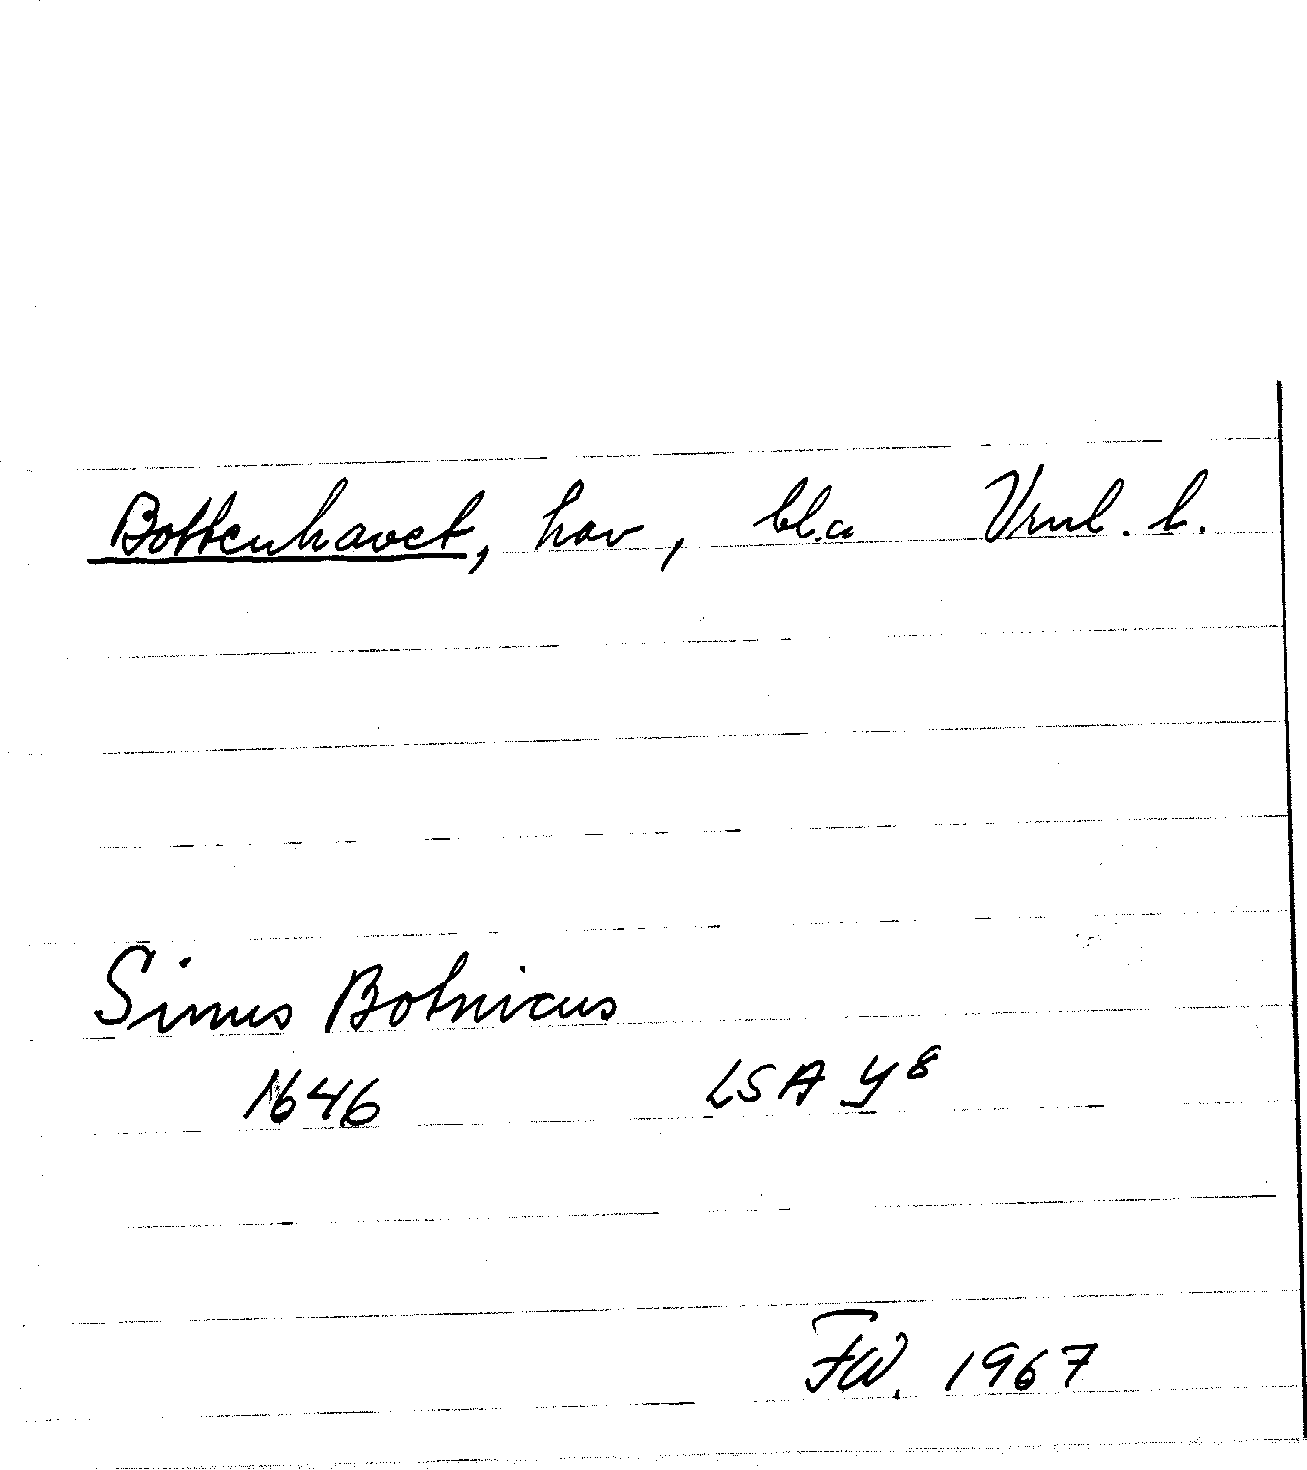 Bottenhavet, hav, bl.a Vrnl. l.
Sinus Botnicus
1646 LSA Y8
FW. 1967